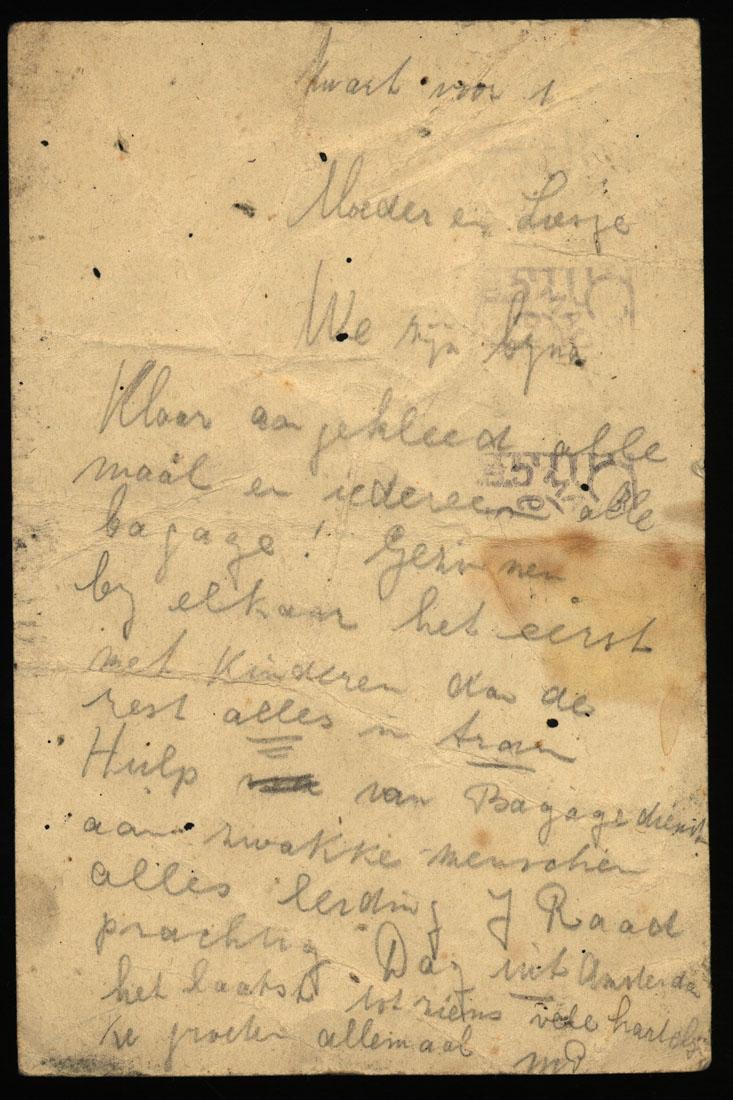 Kwart voor 1
Moeder en Loesje
We zijn byna
Klaar aangekleed alle
maal en iedereen alle
bagage! Gezinnen
by elkaar het eerst
met Kinderen dan de
rest alles in tram
Hulp van Bagagedienst
aan zwakke menschen
alles leiding J Raad
prachtig Dag uit Amsterdam
het laatst tot ziens vele hartelij
ke groeten allemaal